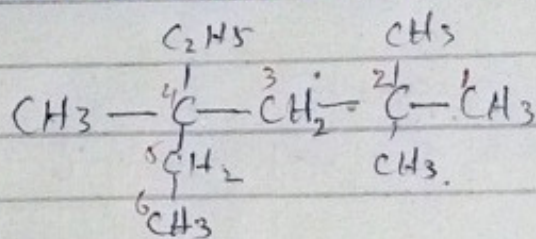 C2H5 CH3
CH3 — 4C — 3CH2 — 2C — 1CH3
5CH2 CH3.
6CH3